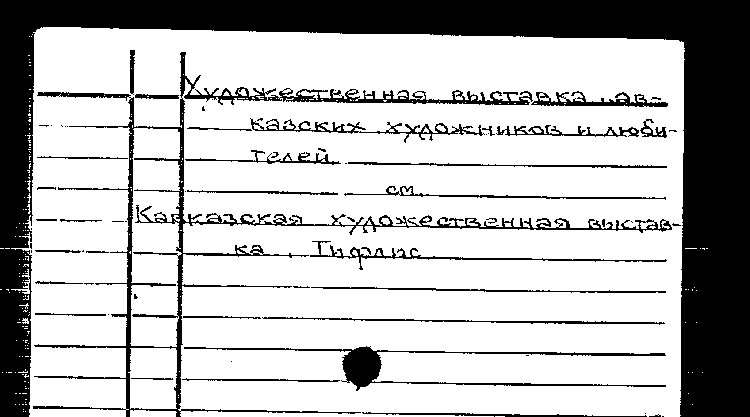 Художественная выставка кав-
казских художников и люби-
телей
см.
Кавказская художественная выстав-
ка, Тифлис